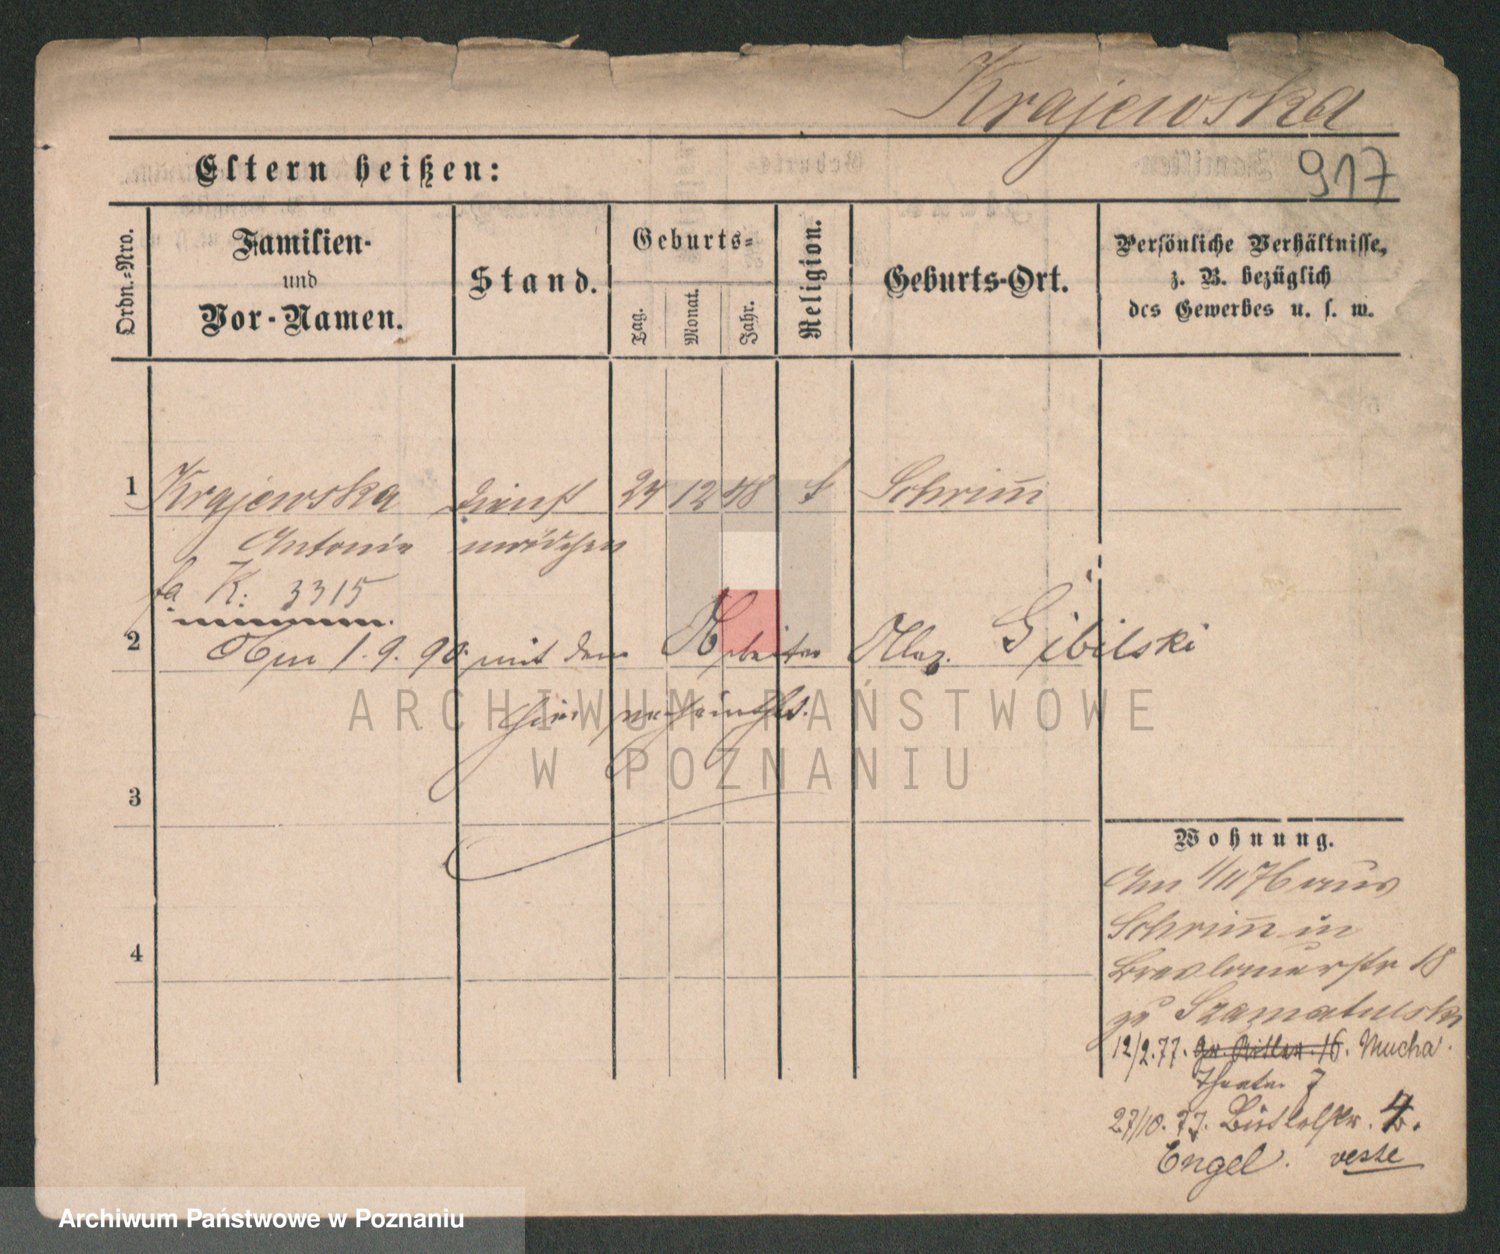 Krajewska
917
Eltern heißen:
Ordn.-Nro.
Familien-
und
Vor-Namen.
Stand.
Geburts-
Tag.
Monat.
Jahr.
Religion.
Geburts-Ort.
Persönliche Verhältnisse,
z. B. bezüglich
des Gewerbes u. s. w.
1 Krajewska Dienst 24 12 48 k Schrim̄
Antonie mädchen
fa K: 3315
2 Am 1.9.90 mit dem Arbeiter Gibilski
hier verheirathet.
3
4
Wohnung.
Am 1/11 76 aus
Schrim̄ in
Breslauerstr 18
zu Szamatulski
12/2.77. gr. Ritter. 16. Mucha.
Theater 7
27/10.77. 4.
Engel.
ARCHIWUM PAŃSTWOWE
W POZNANIU
Archiwum Państwowe w Poznaniu